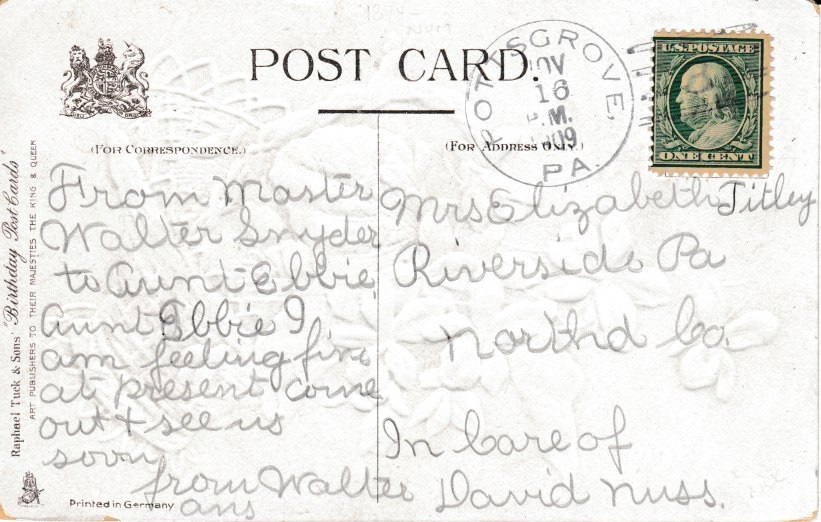 POST CARD.
(FOR CORRESPONDENCE.)
(FOR ADDRESS ONLY.)
POTTSGROVE,
NOV
16
P.M.
1909
PA.
U.S. POSTAGE
ONE CENT
From Master
Walter Snyder
to Aunt Ebbie,
Aunt Ebbie I
am feeling fine
at present come
out + see us
soon
from Walter
ans
Mrs Elizabeth Titley
Riverside Pa
Northd Co.
In Care of
David Nuss.
Raphael Tuck & Sons' "Birthday Post Cards"
ART PUBLISHERS TO THEIR MAJESTIES THE KING & QUEEN
Printed in Germany